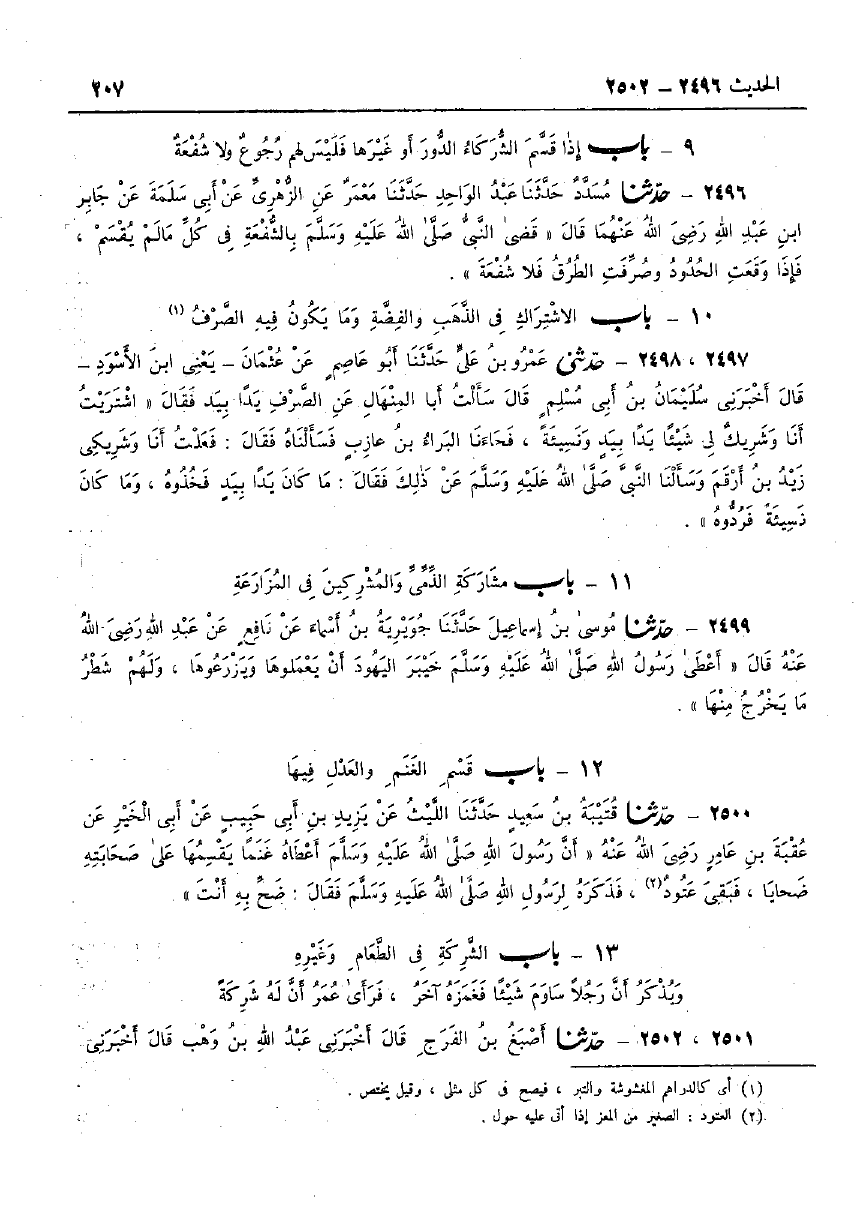 الحديث ٢٤٩٦ - ٢٥٠٢ ٢٠٧
٩ - باب إِذَا قَسَّمَ الشُّرَكَاءُ الدُّورَ أو غَيْرَها فَلَيْسَ لهم رُجُوعٌ ولا شُفْعَةٌ
٢٤٩٦ - حدّثنا مُسَدَّدٌ حَدَّثَنَا عَبْدُ الوَاحِدِ حَدَّثَنَا مَعْمَرٌ عَنِ الزُّهْرِىِّ عَنْ أَبِى سَلَمَةَ عَنْ جَابِرِ
ابنِ عَبْدِ اللهِ رَضِىَ اللهُ عَنْهُمَا قَالَ « قَضىٰ النَّبِىُّ صَلَّىٰ اللهُ عَلَيْهِ وَسَلَّمَ بِالشُّفْعَةِ فِى كُلِّ مَالَمْ يُقْسَمْ ،
فَإِذَا وَقَعَتِ الحُدُودُ وصُرِّفَتِ الطُّرُقُ فَلا شُفْعَةَ » .
١٠ - باب الاشْتِرَاكِ فِى الذَّهَبِ والفِضَّةِ وَمَا يَكُونُ فِيهِ الصَّرْفُ (١)
٢٤٩٧ ، ٢٤٩٨ - حدّثنى عَمْرُو بنُ عَلىٍّ حَدَّثَنَا أَبُو عَاصِمٍ عَنْ عُثْمَانَ - يَعْنِى ابنَ الأَسْوَدِ -
قَالَ أَخْبَرَنِى سُلَيْمَانُ بنُ أَبِى مُسْلِمٍ قَالَ سَأَلْتُ أبا المِنْهَالِ عَنِ الصَّرْفِ يَدًا بِيَدٍ فَقَالَ « اشْتَرَيْتُ
أَنَا وَشَرِيكٌ لِى شَيْئًا يَدًا بِيَدٍ وَنَسِيئَةً ، فَجَاءَنَا البَرَاءُ بنُ عَازِبٍ فَسَأَلْنَاهُ فَقَالَ : فَعَلْتُ أَنَا وَشَرِيكِى
زَيْدُ بنُ أَرْقَمَ وَسَأَلْنَا النَّبِىَّ صَلَّىٰ اللهُ عَلَيْهِ وَسَلَّمَ عَنْ ذٰلِكَ فَقَالَ : مَا كَانَ يَدًا بِيَدٍ فَخُذُوهُ ، وَمَا كَانَ
نَسِيئَةً فَرُدُّوهُ » .
١١ - باب مشَارَكَةِ الذِّمِّىِّ وَالمُشْرِكِينَ فِى المُزَارَعَةِ
٢٤٩٩ - حدّثنا مُوسىٰ بنُ إسماعِيلَ حَدَّثَنَا جُوَيْرِيَةُ بنُ أَسْمَاءَ عَنْ نَافِعٍ عَنْ عَبْدِ اللهِ رَضِىَ اللهُ
عَنْهُ قَالَ « أَعْطَىٰ رَسُولُ اللهِ صَلَّىٰ اللهُ عَلَيْهِ وَسَلَّمَ خَيْبَرَ اليَهُودَ أَنْ يَعْمَلوهَا وَيَزْرَعُوهَا ، وَلَهُمْ شَطْرُ
مَا يَخْرُجُ مِنْهَا » .
١٢ - باب قَسْمِ الغَنَمِ والعَدْلِ فِيهَا
٢٥٠٠ - حدّثنا قُتَيْبَةُ بنُ سَعِيدٍ حَدَّثَنَا اللَّيْثُ عَنْ يَزِيدَ بنِ أَبِى حَبِيبٍ عَنْ أَبِى الْخَيْرِ عَن
عُقْبَةَ بنِ عَامِرٍ رَضِىَ اللهُ عَنْهُ « أَنَّ رَسُولَ اللهِ صَلَّىٰ اللهُ عَلَيْهِ وَسَلَّمَ أَعْطَاهُ غَنَمًا يَقْسِمُهَا عَلىٰ صَحَابَتِهِ
ضَحايَا ، فَبَقِىَ عَتُودٌ (٢) ، فَذَكَرَهُ لِرَسُولِ اللهِ صَلَّىٰ اللهُ عَلَيهِ وَسَلَّمَ فَقَالَ : ضَحِّ بِهِ أَنْتَ »
١٣ - باب الشَّرِكَةِ فِى الطَّعَامِ وَغَيْرِهِ
وَيُذْكَرُ أَنَّ رَجُلاً سَاوَمَ شَيْئًا فَغَمَزَهُ آخَرُ ، فَرَأَىٰ عُمَرُ أَنَّ لَهُ شَرِكَةً
٢٥٠١ ، ٢٥٠٢ - حدّثنا أَصْبَغُ بنُ الفَرَجِ قَالَ أَخْبَرَنِى عَبْدُ اللهِ بنُ وَهْب قَالَ أَخْبَرَنِى
(١) أى كالدراهم المغشوشة والتبر ، فيصح فى كل مثلى ، وقيل يختص .
(٢) العتود : الصغير من المعز إذا أتى عليه حول .